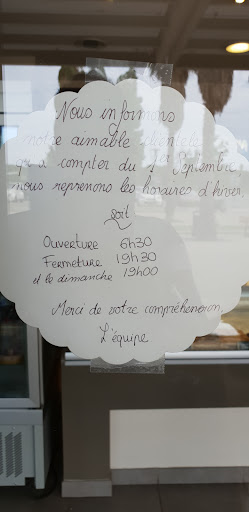 Nous informons
notre aimable clientèle
qu'à compter du 1er Septembre
nous reprenons les horaires d'hiver
soit
Ouverture 6h30
Fermeture 19h30
et le dimanche 19h00
Merci de votre compréhension,
L'équipe